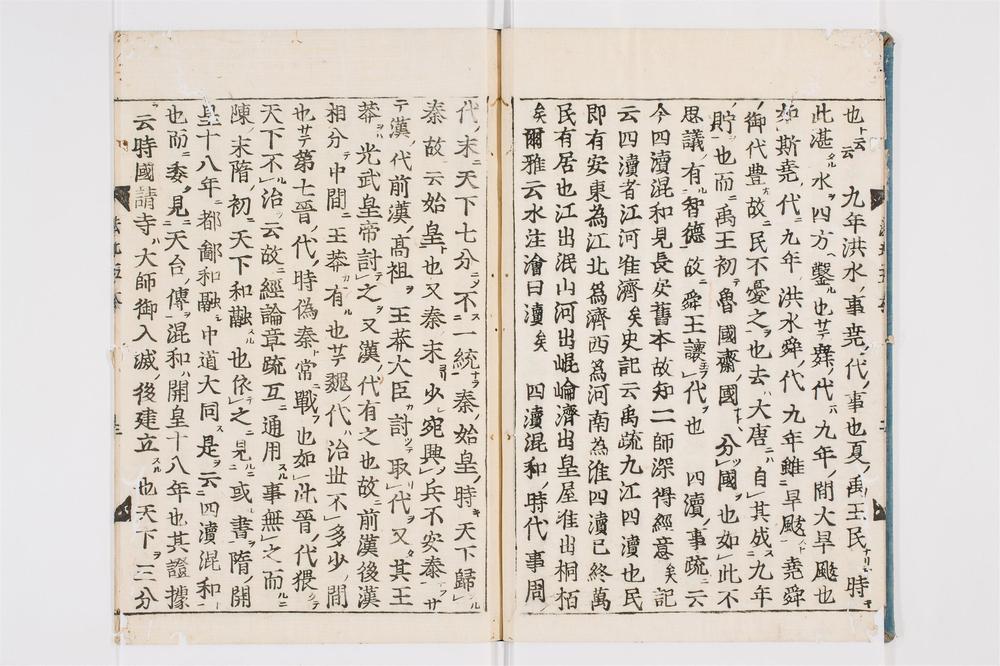 也ト云　九年洪水ノ事堯ノ代ノ事也夏ノ禹王民ナリシ時キ
此湛タル水ヲ四方ヘ鑿ル也サテ舜ノ代ハ九年ノ間大旱颰也
如ノ斯堯ノ代ニ九年ノ洪水舜ノ代九年雖ニ旱颰ノト堯舜
ノ御代豊ナル故ニ民不憂之ヲ也去ハ大唐ニハ自其成ス九年
ノ貯ヲ也而ニ禹王初テ魯國齋國ナト分ツ國ヲ也如此不
思議ノ有ル智德故ニ舜王讓玉フ代ヲ也　四瀆ノ事疏ニ云
今四瀆混和見長安舊本故知二師深得經意矣記
云四瀆者江河淮濟矣史記云禹疏九江四瀆也民
即有安東為江北爲濟西爲河南為淮四瀆已終萬
民有居也江出泯山河出崐崘濟出皇屋淮出桐栢
矣爾雅云水注澮曰瀆矣　四瀆混和ノ時代事周ノ
代ノ末ニ天下七分ニメ不ニ一統ナラ秦ノ始皇ノ時キ天下歸ル
秦故云始皇ト也又秦末ヨリ少シ宛興ノ兵不安泰ナラサ
テ漢ノ代前漢ノ髙祖ヲ王莽大臣カ討ツテ取リ代ヲ又タ其王
莽ヲハ光武皇帝討テ之ヲ又漢ノ代有之也故前漢後漢
相分テ中間ニ王莽カ有ル也サテ魏ノ代ハ治世不多少ノ間
也サテ第七晋ノ代ノ時偽秦ト常ニ戰フ也如此晋ノ代猥シテ
天下不ル治ラ云故ニ經論章疏互ニ通用スル事無之而ルニ
陳ノ末隋ノ初ニ天下和融スル也依テ之ニ見ルニ或ル書ヲ隋ノ開
皇十八年ニ都鄙和融シ中道大同ス是ヲ云ニ四瀆混和ト
也而ニ委ク見ニ天台ノ傳ヲ混和ハ開皇十八年也其證據
ヲ云時國請寺ハ大師御入滅ノ後建立スル也天下ヲ三分